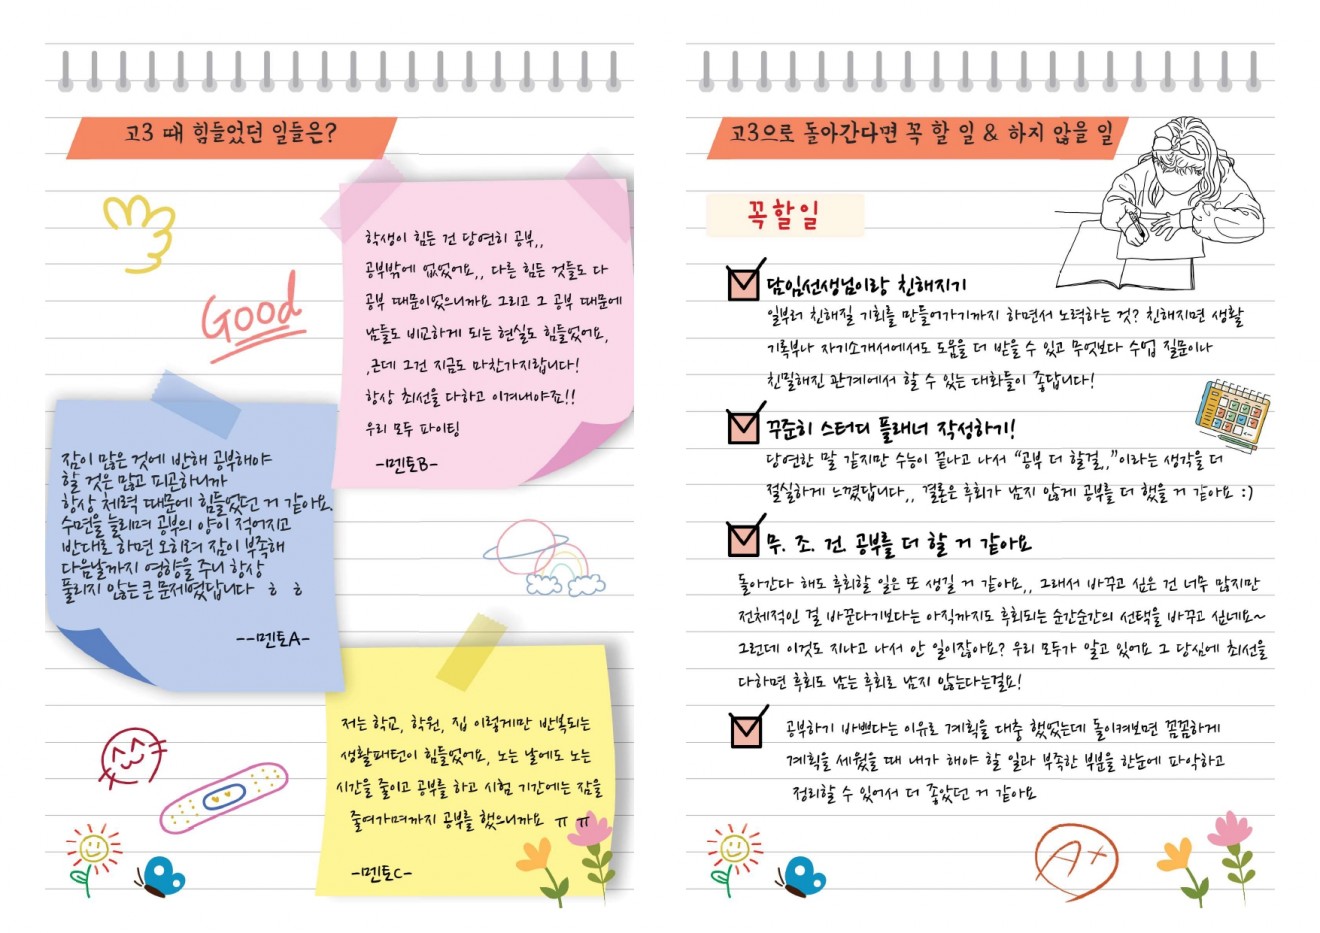 고3 때 힘들었던 일들은?
Good
학생이 힘든 건 당연히 공부,,
공부밖에 없었어요,, 다른 힘든 것들도 다
공부 때문이었으니까요 그리고 그 공부 때문에
남들도 비교하게 되는 현실도 힘들었어요,
,근데 그건 지금도 마찬가지랍니다!
항상 최선을 다하고 이겨내야죠!!
우리 모두 파이팅
-멘토B-
잠이 많은 것에 반해 공부해야
할 것은 많고 피곤하니까
항상 체력 때문에 힘들었던 거 같아요.
수면을 늘리며 공부의 양이 적어지고
반대로 하면 오히려 잠이 부족해
다음날까지 영향을 주니 항상
풀리지 않는 큰 문제였답니다 ㅎ ㅎ
--멘토A-
저는 학교, 학원, 집 이렇게만 반복되는
생활패턴이 힘들었어요, 노는 날에도 노는
시간을 줄이고 공부를 하고 시험 기간에는 잠을
줄여가며까지 공부를 했으니까요 ㅠㅠ
-멘토C-
고3으로 돌아간다면 꼭 할 일 & 하지 않을 일
꼭할일
담임선생님이랑 친해지기
일부러 친해질 기회를 만들어가기까지 하면서 노력하는 것? 친해지면 생활
기록부나 자기소개서에서도 도움을 더 받을 수 있고 무엇보다 수업 질문이나
친밀해진 관계에서 할 수 있는 대화들이 좋답니다!
꾸준히 스터디 플래너 작성하기!
당연한 말 같지만 수능이 끝나고 나서 “공부 더 할걸,,”이라는 생각을 더
절실하게 느꼈답니다,, 결론은 후회가 남지 않게 공부를 더 했을 거 같아요 :)
무. 조. 건. 공부를 더 할 거 같아요
돌아간다 해도 후회할 일은 또 생길 거 같아요,, 그래서 바꾸고 싶은 건 너무 많지만
전체적인 걸 바꾼다기보다는 아직까지도 후회되는 순간순간의 선택을 바꾸고 싶네요~
그런데 이것도 지나고 나서 안 일이잖아요? 우리 모두가 알고 있어요 그 당시에 최선을
다하면 후회도 남는 후회로 남지 않는다는걸요!
공부하기 바쁘다는 이유로 계획을 대충 했었는데 돌이켜보면 꼼꼼하게
계획을 세웠을 때 내가 해야 할 일과 부족한 부분을 한눈에 파악하고
정리할 수 있어서 더 좋았던 거 같아요
A+